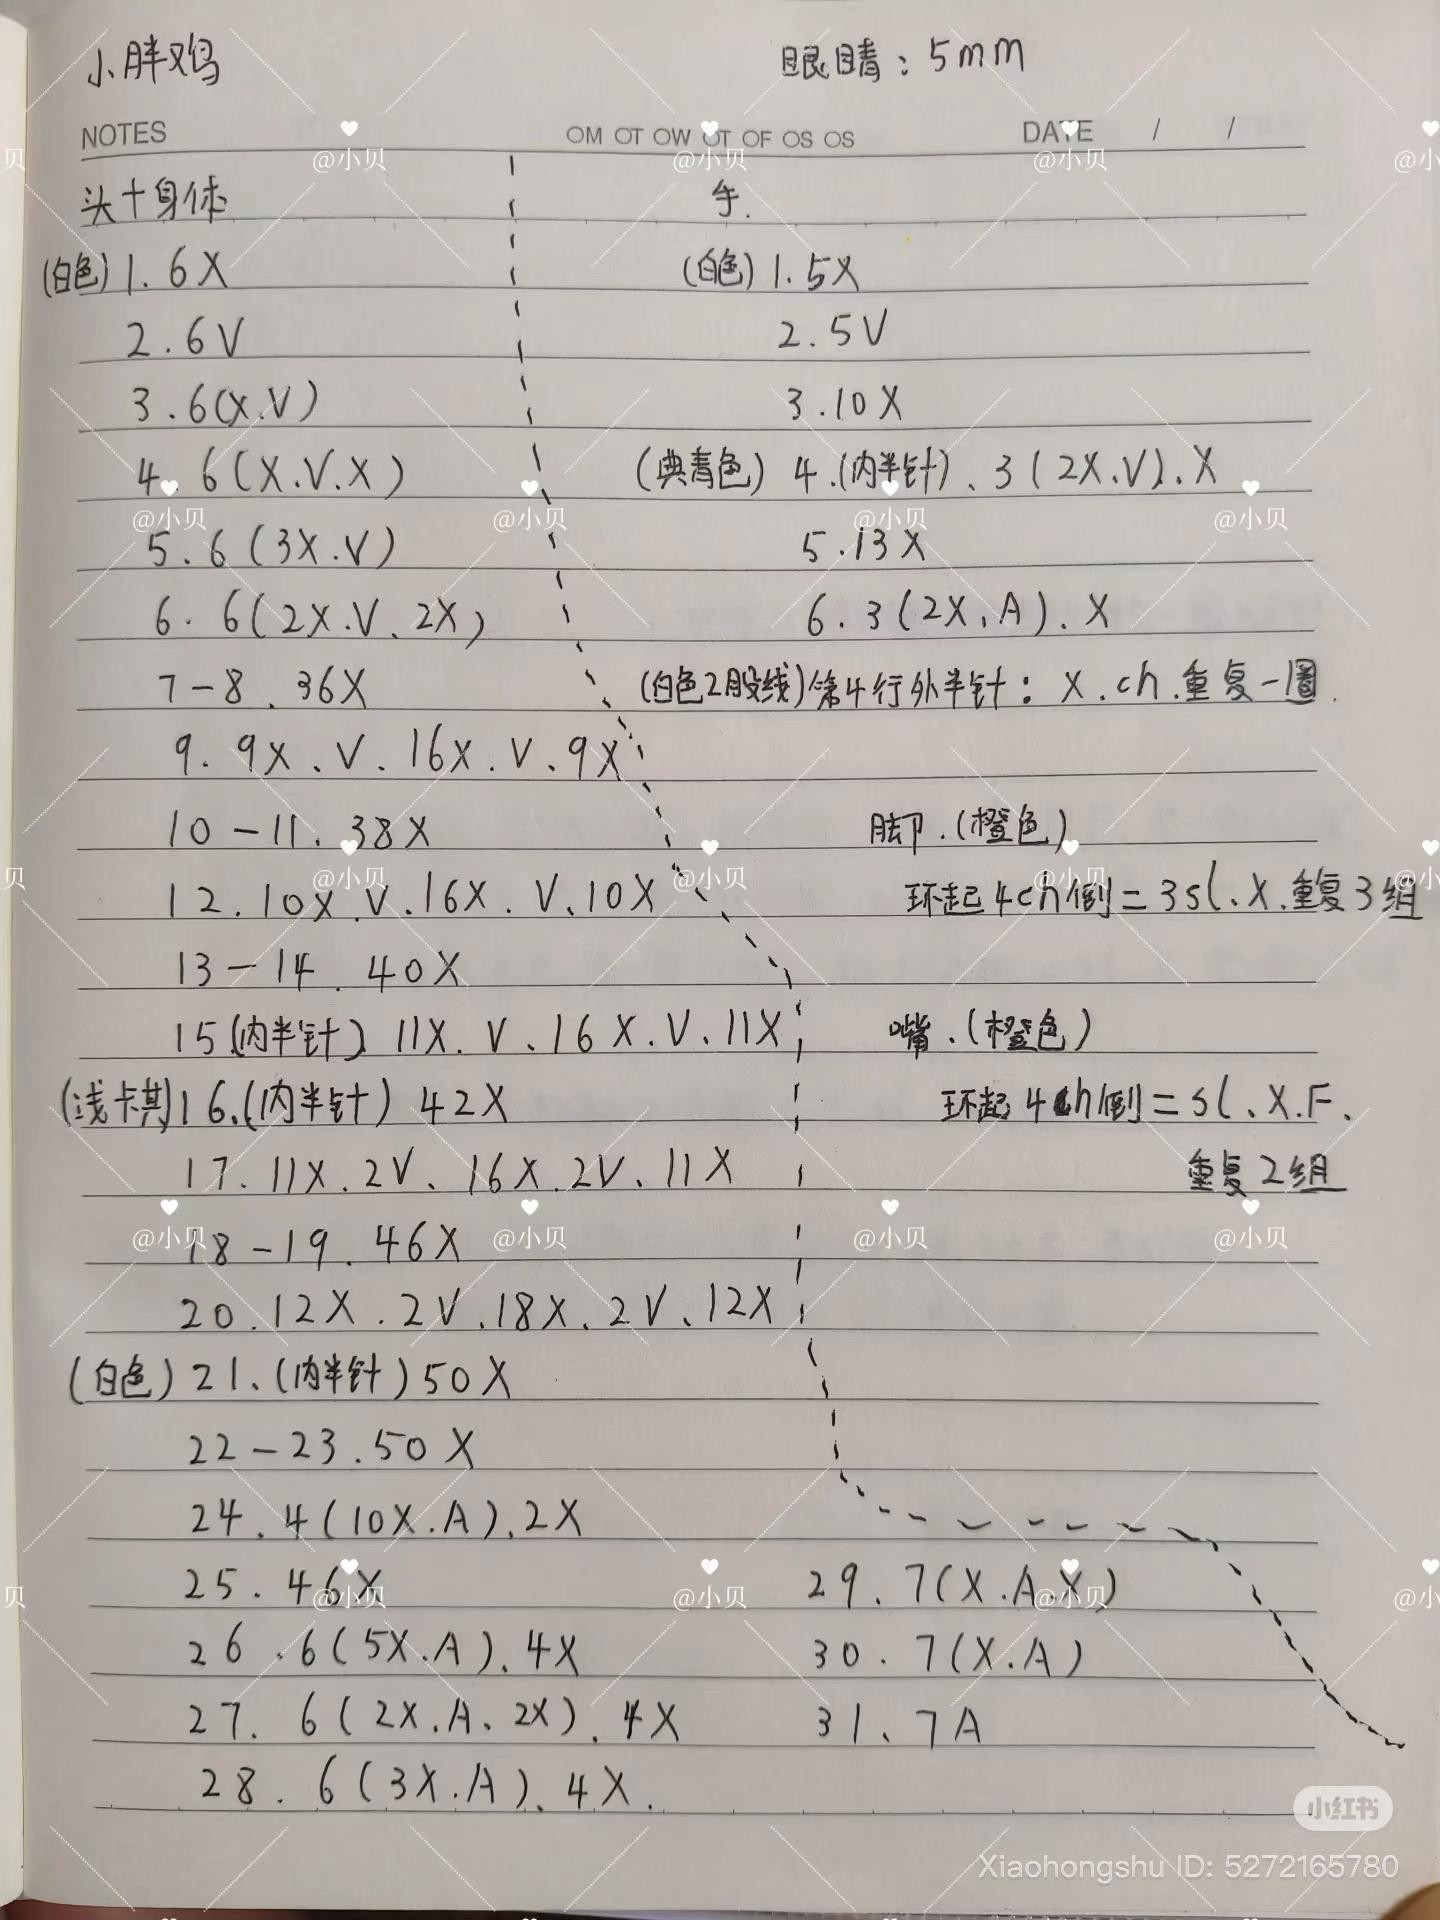 小胖鸡
眼睛：5mm
NOTES
OM OT OW OT OF OS OS
DATE / /
头+身体
(白色) 1. 6X
2. 6V
3. 6(X.V)
4. 6(X.V.X)
5. 6(3X.V)
6. 6(2X.V、2X)
7-8. 36X
9. 9X、V、16X、V、9X
10-11. 38X
12. 10X.V.16X.V、10X
13-14. 40X
15(内半针) 11X.V、16X.V、11X
(浅卡其)16.(内半针) 42X
17. 11X.2V、16X.2V、11X
18-19. 46X
20. 12X.2V.18X.2V、12X
(白色) 21、(内半针) 50X
22-23. 50X
24. 4(10X.A).2X
25. 46X
26. 6(5X.A)、4X
27. 6(2X.A、2X)、4X
28. 6(3X.A)、4X.
29. 7(X.A.X)
30. 7(X.A)
31、7A
手.
(白色) 1.5X
2.5V
3.10X
(典青色) 4.(内半针)、3(2X.V)、X
5.13X
6.3(2X、A)、X
(白色2股线)第4行外半针：X.ch.重复一圈.
脚.(橙色)
环起4ch倒=3sl、X.重复3组
嘴.(橙色)
环起4ch倒=sl、X.F、
重复2组
@小贝
小红书
Xiaohongshu ID: 5272165780